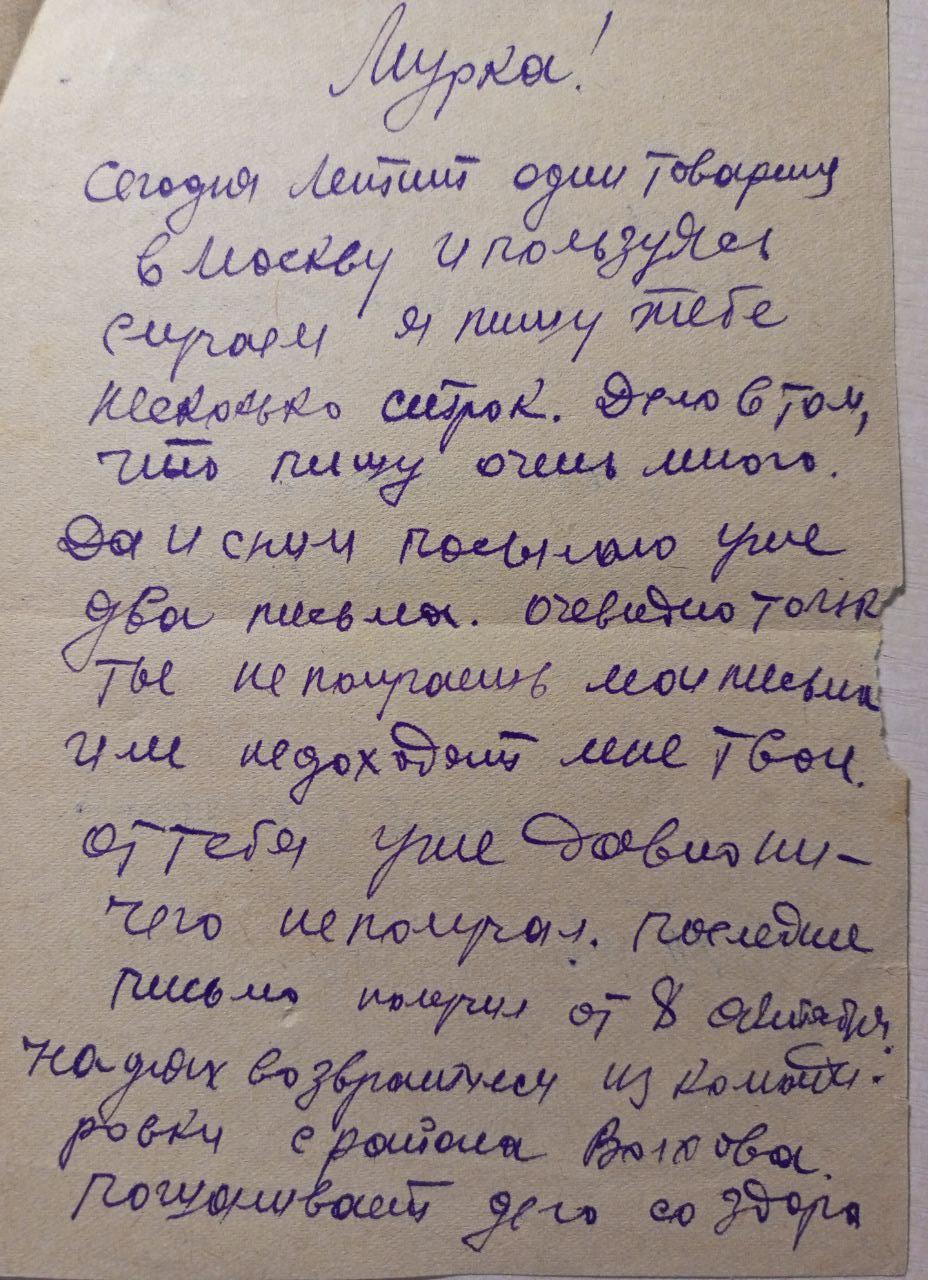 Мурка!
Сегодня летит один товарищ
в Москву и пользуясь
случаем я пишу тебе
несколько строк. Дело в том,
что пишу очень много.
Да и с ним посылаю уже
два письма. Очевидно толи
ты не получаешь мои письма
или не доходят мне твои.
От тебя уже давно ни-
чего не получал. Последнее
письмо получил от 8 октября.
На днях возвратился из команди-
ровки с района Волхова.
Пошаливает дело со здоро